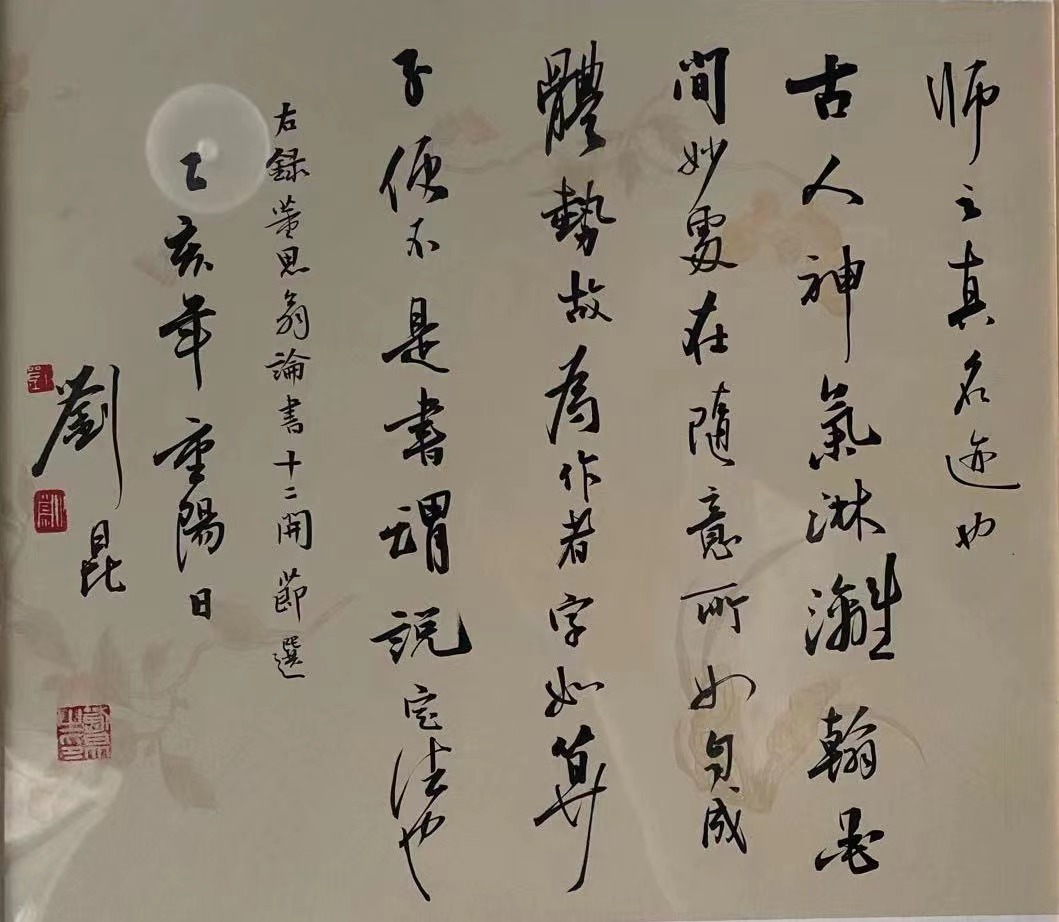 师之真名迹也
古人神氣淋灕翰墨
間妙處在隨意所如自成
體勢故為作者字如算
子便不是書謂説定法也
右録董思翁論書十二開節選
乙亥年重陽日
劉昆